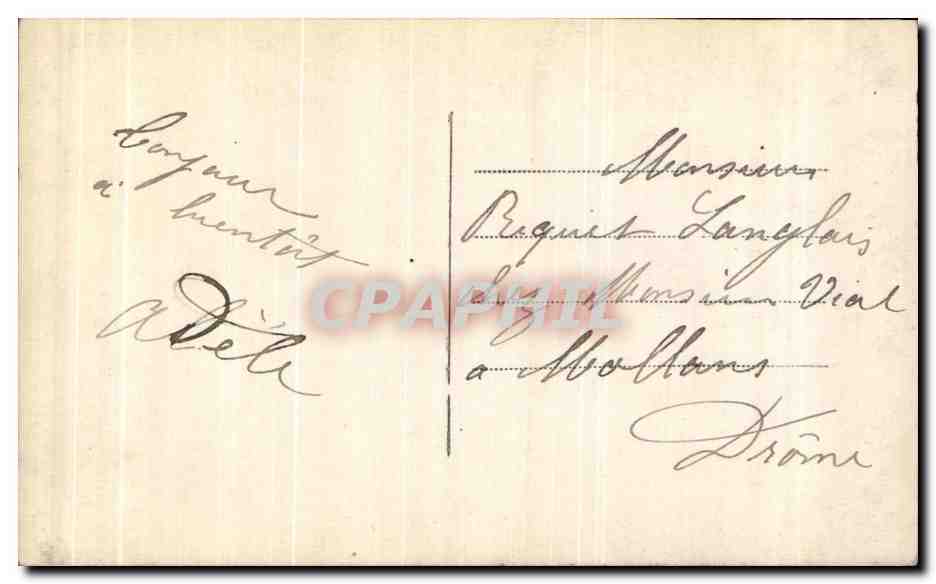 Bonjour
à bientôt
Adèle
Monsieur
Riquet Langlais
chez Monsieur Vial
a Mollans
Drôme
CPAPHIL